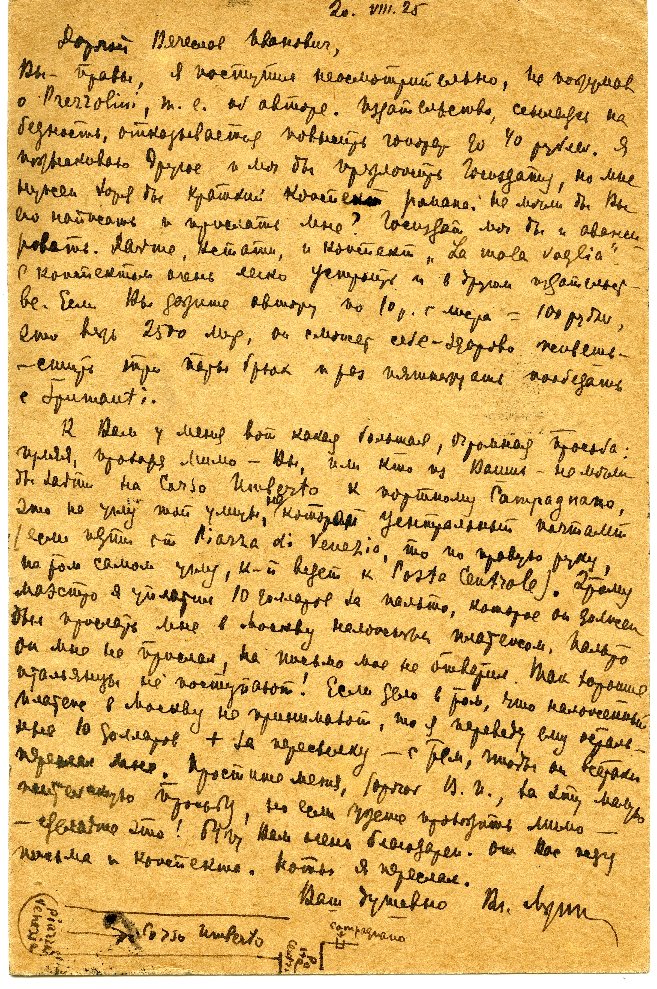 20. VIII. 25
Дорогой Вячеслав Иванович,
Вы – правы, я поступил неосмотрительно, не подумав
о Prezzolini, т. е. об авторе. Издательство, ссылаясь на
бедность, отказывается повысить гонорар до 40 рублей. Я
подыскиваю другое и мог бы предложить Госиздату, но мне
нужен хотя бы краткий конспект романа. Не могли бы Вы
его написать и прислать мне? Госиздат мог бы и аванси-
ровать. Дайте, кстати, и конспект „La mala voglia".
С конспектом очень легко устроить и в другом издательст-
ве. Если Вы дадите автору по 10 р. с листа = 100 рублей,
это ведь 2500 лир, он сможет себе – здорово живешь –
сшить три пары брюк и раз пятнадцать пообедать
с
К Вам у меня вот какая большая, огромная просьба:
проходя мимо – Вы, или кто из Ваших – не могли
бы зайти на Corso Umberto к портному Campagnano,
это на углу той улицы, на которой центральный почтамт
(если идти от Piazza di Venezia, то по правую руку,
на том самом углу, к-й ведет к Posta Centrale). Этому
маэстро я уплатил 10 долларов за пальто, которое он должен
был прислать мне в Москву наложенным платежом. Пальто
он мне не прислал, на письмо мое не ответил. Так хорошие
итальянцы не поступают! Если дело в том, что наложенный
платеж в Москву не принимают, то я переведу ему осталь-
ные 10 долларов + за пересылку – с тем, чтобы он
переслал мне. Простите меня, дорогой В. И., за эту
просьбу, но если будете проходить мимо –
– сделайте это! Буду Вам очень благодарен. От Вас жду
письма и конспекта. Ноты я переслал.
Ваш душевно Вл.
piazza Venezia
Corso Umberto
Campagnano